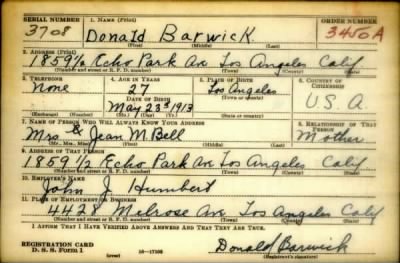 SERIAL NUMBER 1. NAME (Print) ORDER NUMBER
3708 Donald Barwick 3450A
(First) (Middle) (Last)
2. ADDRESS (Print)
1859½ Echo Park Ave Los Angeles Calif
(Number and street or R. F. D. number) (Town) (County) (State)
3. TELEPHONE 4. AGE IN YEARS 5. PLACE OF BIRTH 6. COUNTRY OF CITIZENSHIP
None 27 Los Angeles U.S.A.
DATE OF BIRTH
May 23rd 1913
7. NAME OF PERSON WHO WILL ALWAYS KNOW YOUR ADDRESS 8. RELATIONSHIP OF THAT PERSON
Mrs Jean M. Bell Mother
(Mr., Mrs., Miss) (First) (Middle) (Last)
9. ADDRESS OF THAT PERSON
1859 1/2 Echo Park Ave Los Angeles Calif
(Number and street or R. F. D. number) (Town) (County) (State)
10. EMPLOYER'S NAME
John J Humbert
11. PLACE OF EMPLOYMENT OR BUSINESS
4428 Melrose Ave Los Angeles Calif
(Number and street or R. F. D. number) (Town) (County) (State)
I AFFIRM THAT I HAVE VERIFIED ABOVE ANSWERS AND THAT THEY ARE TRUE.
REGISTRATION CARD
D. S. S. Form 1 (over) Donald Barwick